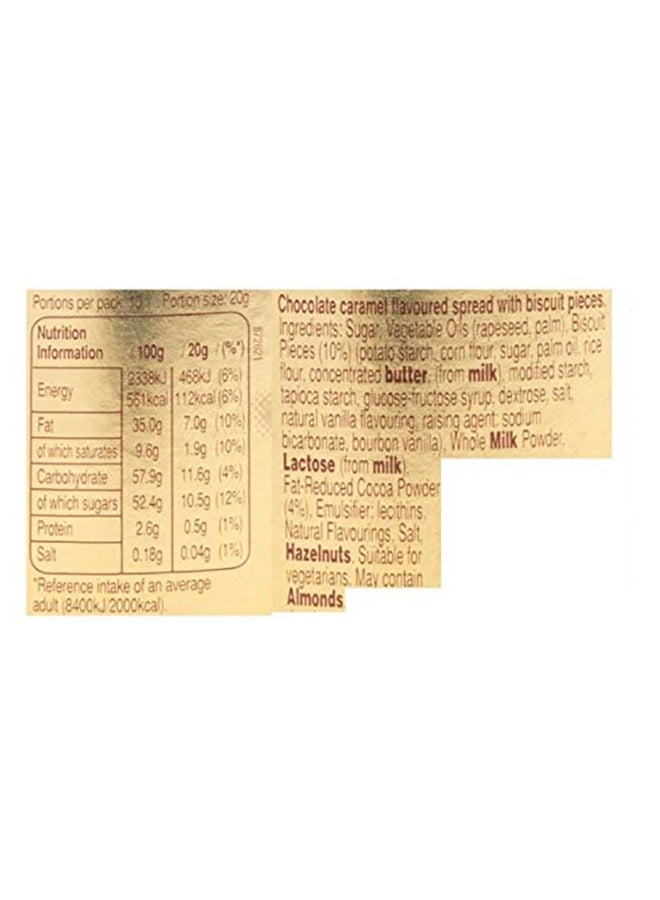 Portions per pack: Portion size: 20g
Nutrition
Information /100g /20g /(%*)
Energy 2338kJ 468kJ (6%)
561kcal 112kcal (6%)
Fat 35.0g 7.0g (10%)
of which saturates 9.6g 1.9g (10%)
Carbohydrate 57.9g 11.6g (4%)
of which sugars 52.4g 10.5g (12%)
Protein 2.6g 0.5g (1%)
Salt 0.18g 0.04g (1%)
*Reference intake of an average
adult (8400kJ/2000kcal).
Chocolate caramel flavoured spread with biscuit pieces.
Ingredients: Sugar, Vegetable Oils (rapeseed, palm), Biscuit
Pieces (10%) (potato starch, corn flour, sugar, palm oil, rice
flour, concentrated butter, (from milk), modified starch,
tapioca starch, glucose-fructose syrup, dextrose, salt,
natural vanilla flavouring, raising agent: sodium
bicarbonate, bourbon vanilla), Whole Milk Powder,
Lactose (from milk),
Fat-Reduced Cocoa Powder
(4%), Emulsifier: lecithins,
Natural Flavourings, Salt,
Hazelnuts. Suitable for
vegetarians. May contain
Almonds